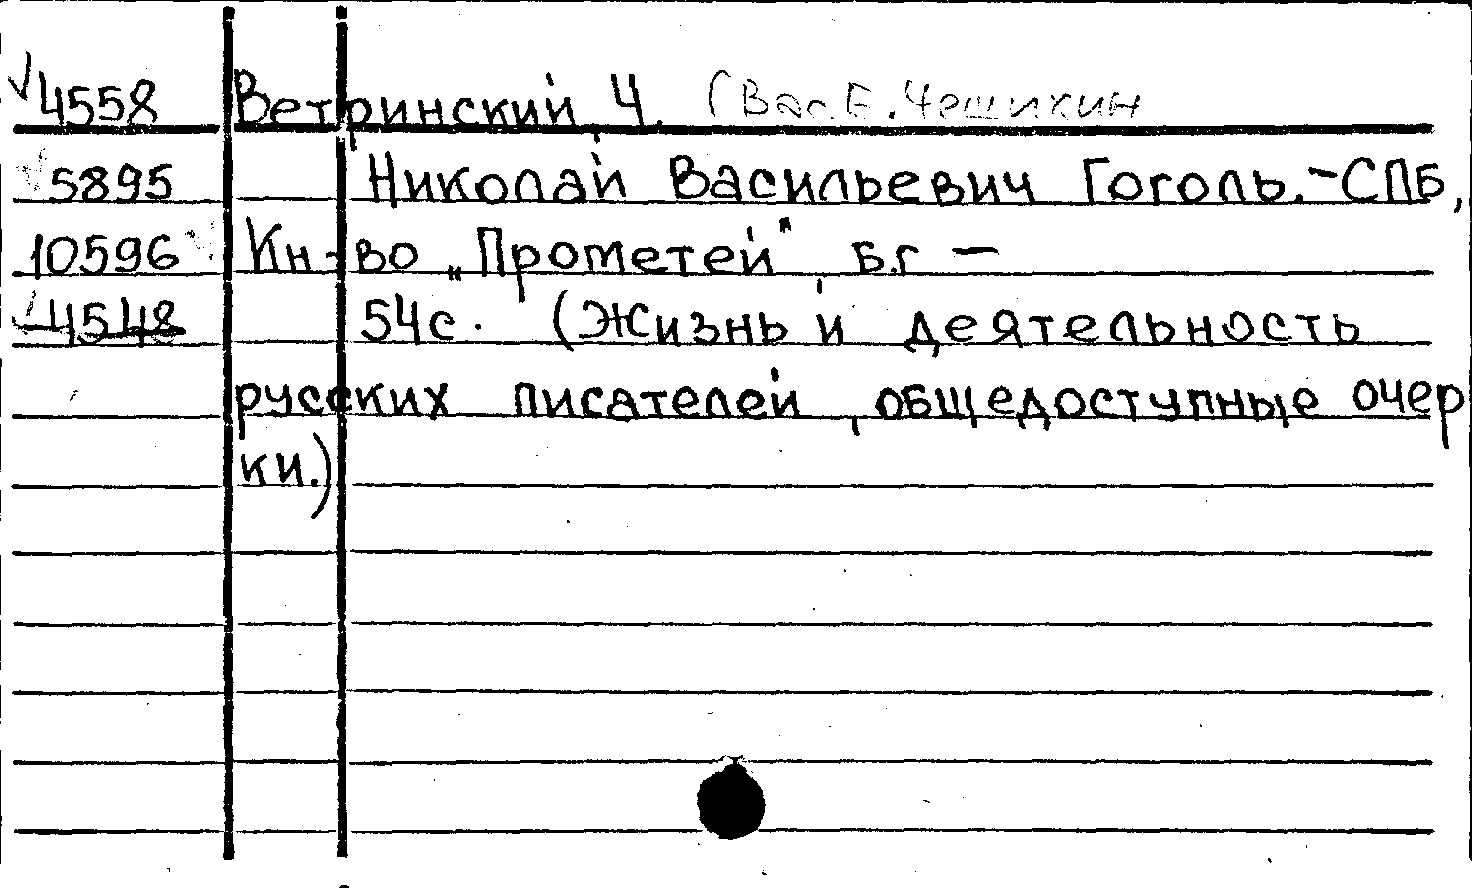 √4558 Ветринский, Ч. (Вас. Е. Чешихин
5895 Николай Васильевич Гоголь. - СПБ,
10596 Кн-во „Прометей" б.г —
4548 54с. (Жизнь и деятельность
русских писателей, общедоступные очер
ки.)